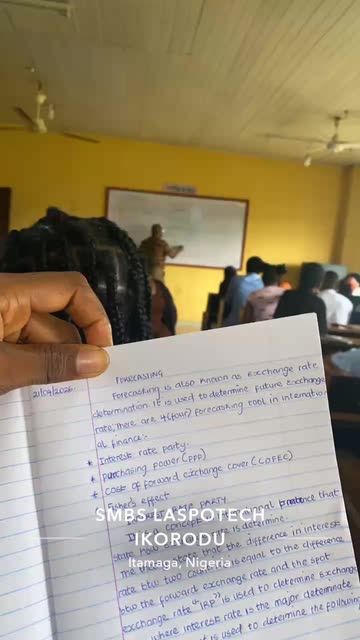 21/04/2026
FORECASTING
Forecasting is also known as exchange rate
determination. It is used to determine future exchange
rate, there are 4(four) forecasting tool in internation
al finance:-
* Interest rate party.
* Purchasing power (PPP)
* Cost of forward exchange cover (COFEC)
Fisher's effect
PARTY
SMBS LASPOTECH
IKORODU
Itamaga, Nigeria
that
state how is determine.
The that the difference in interest
rate btw two is equal to the difference
btw the forward exchange rate and the spot
exchange rate "IRP" is used to determine exchange
where interest rate is the major determinate
is used to determine the following